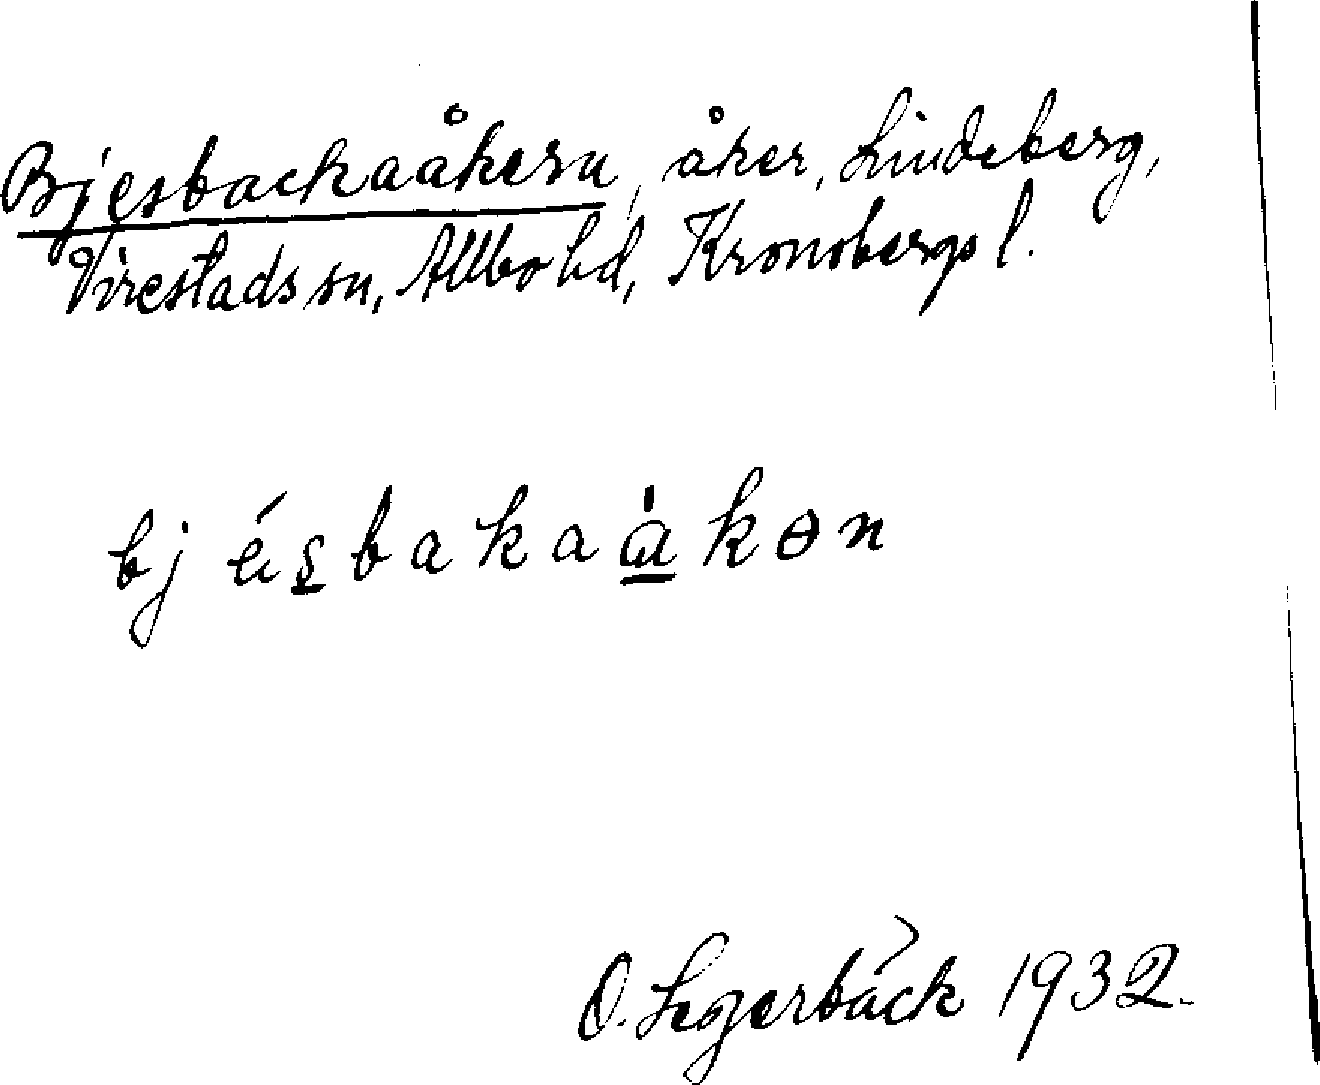 Bjesbackaåkern, åker, Lindeberg,
Virestads sn, Allbo hd, Kronobergs l.
bj ésbakaàkən
O. Legerbäck 1932.